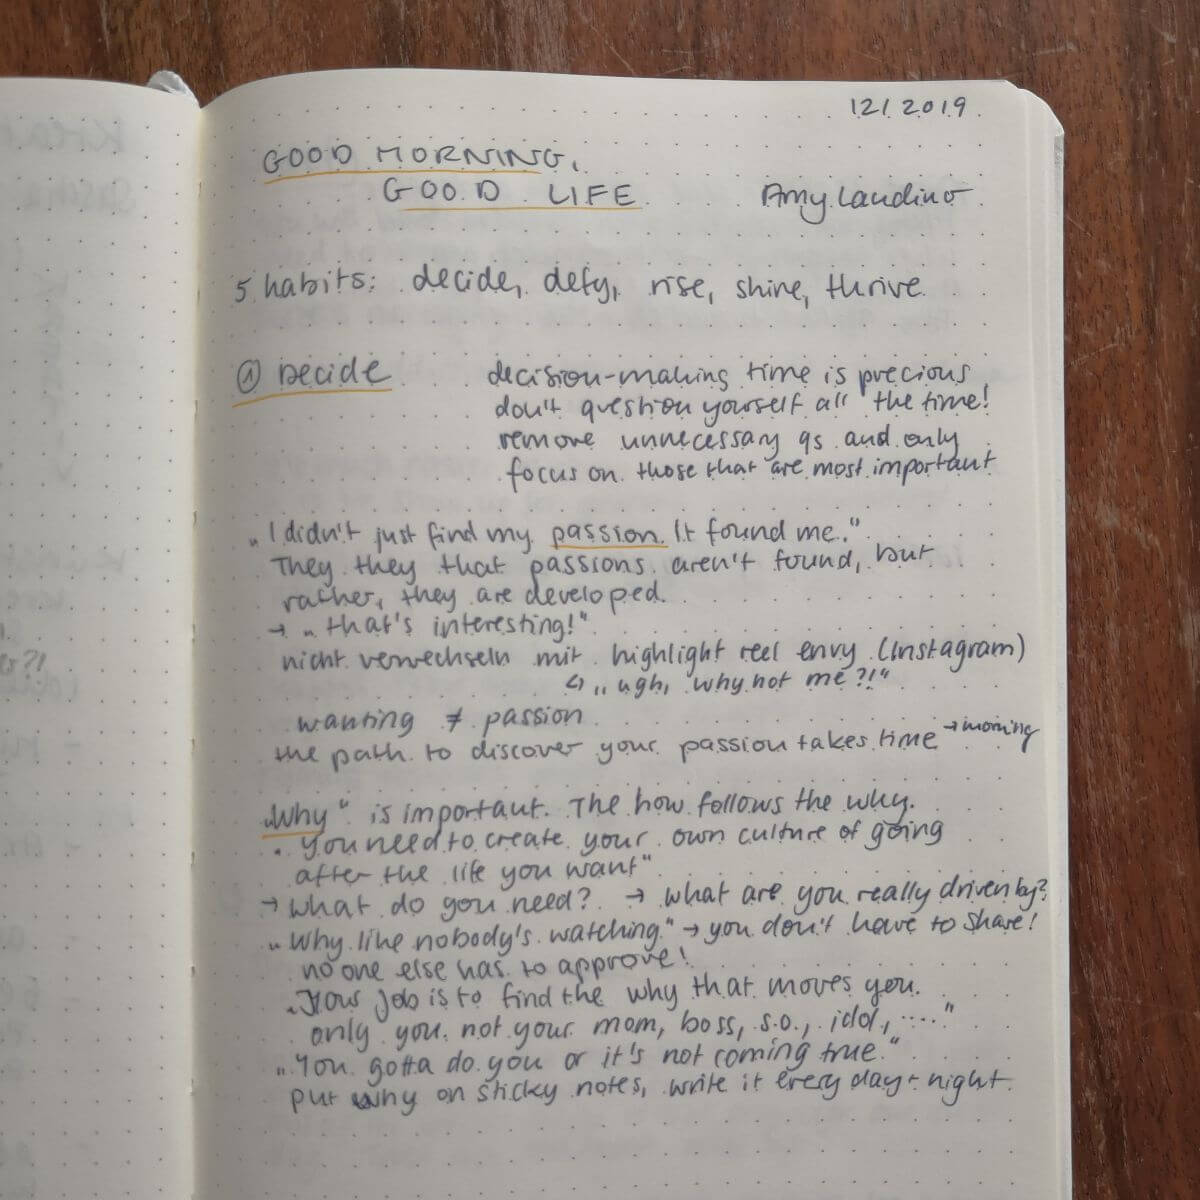 12/2019
GOOD MORNING,
GOOD LIFE Amy Landino
5 habits: decide, defy, rise, shine, thrive
① Decide decision-making time is precious
don't question yourself all the time!
remove unnecessary qs and only
focus on those that are most important
„I didn't just find my passion. It found me."
They they that passions aren't found, but
rather, they are developed.
→ „that's interesting!"
nicht verwechseln mit highlight reel envy (Instagram)
↳ „ugh, why not me?!"
wanting ≠ passion
the path to discover your passion takes time → morning
„Why" is important. The how follows the why.
„You need to create your own culture of going
after the life you want"
→ what do you need? → what are you really driven by?
„Why like nobody's watching." → you don't have to share!
no one else has to approve!
„Your job is to find the why that moves you.
only you. not your mom, boss, s.o., idol, ....."
„You gotta do you or it's not coming true."
put why on sticky notes, write it every day + night
?!